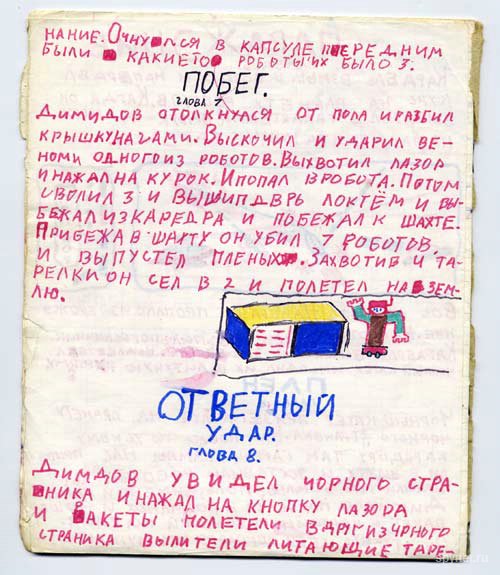 НАНИЕ. ОЧНУЛСЯ В КАПСУЛЕ ПЕРЕД НИМ
БЫЛИ КАКИЕТО РОБОТЫ ИХ БЫЛО 3.
ПОБЕГ.
ГЛОВА 7
ДИМИДОВ ОТОЛКНУЛСЯ ОТ ПОЛА И РАЗБИЛ
КРЫШКУ НАГАМИ. ВЫСКОЧИЛ И УДАРИЛ ВЕ-
НОМИ ОДНОГО ИЗ РОБОТОВ. ВЫХВОТИЛ ЛАЗОР
И НАЖАЛ НА КУРОК. И ПОПАЛ В РОБОТА. ПОТОМ
СВОЛИЛ 3 И ВЫШИП ДВРЬ ЛОКТЁМ И ВЫ-
БЕЖАЛ ИЗ КАРЕДРА И ПОБЕЖАЛ К ШАХТЕ.
ПРИБЕЖАВ ШАХТУ ОН УБИЛ 7 РОБОТОВ.
И ВЫПУСТЕЛ ПЛЕНЫХ. ЗАХВОТИВ 4 ТА-
РЕЛКИ ОН СЕЛ В 2 И ПОЛЕТЕЛ НА ЗЕМ-
ЛЮ.
ОТВЕТНЫЙ
УДАР.
ГЛОВА 8.
ДИМДОВ УВИДЕЛ ЧОРНОГО СТРА-
НИКА И НАЖАЛ НА КНОПКУ ЛАЗОРА
И РАКЕТЫ ПОЛЕТЕЛИ ВДРУГ ИЗ ЧРНОГО
СТРАНИКА ВЫЛИТЕЛИ ЛИТАЮЩИЕ ТАРЕ-
spynet.ru